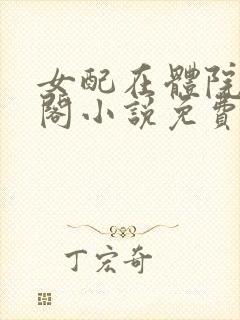 女配在體院
閣小說免費
丁宏奇